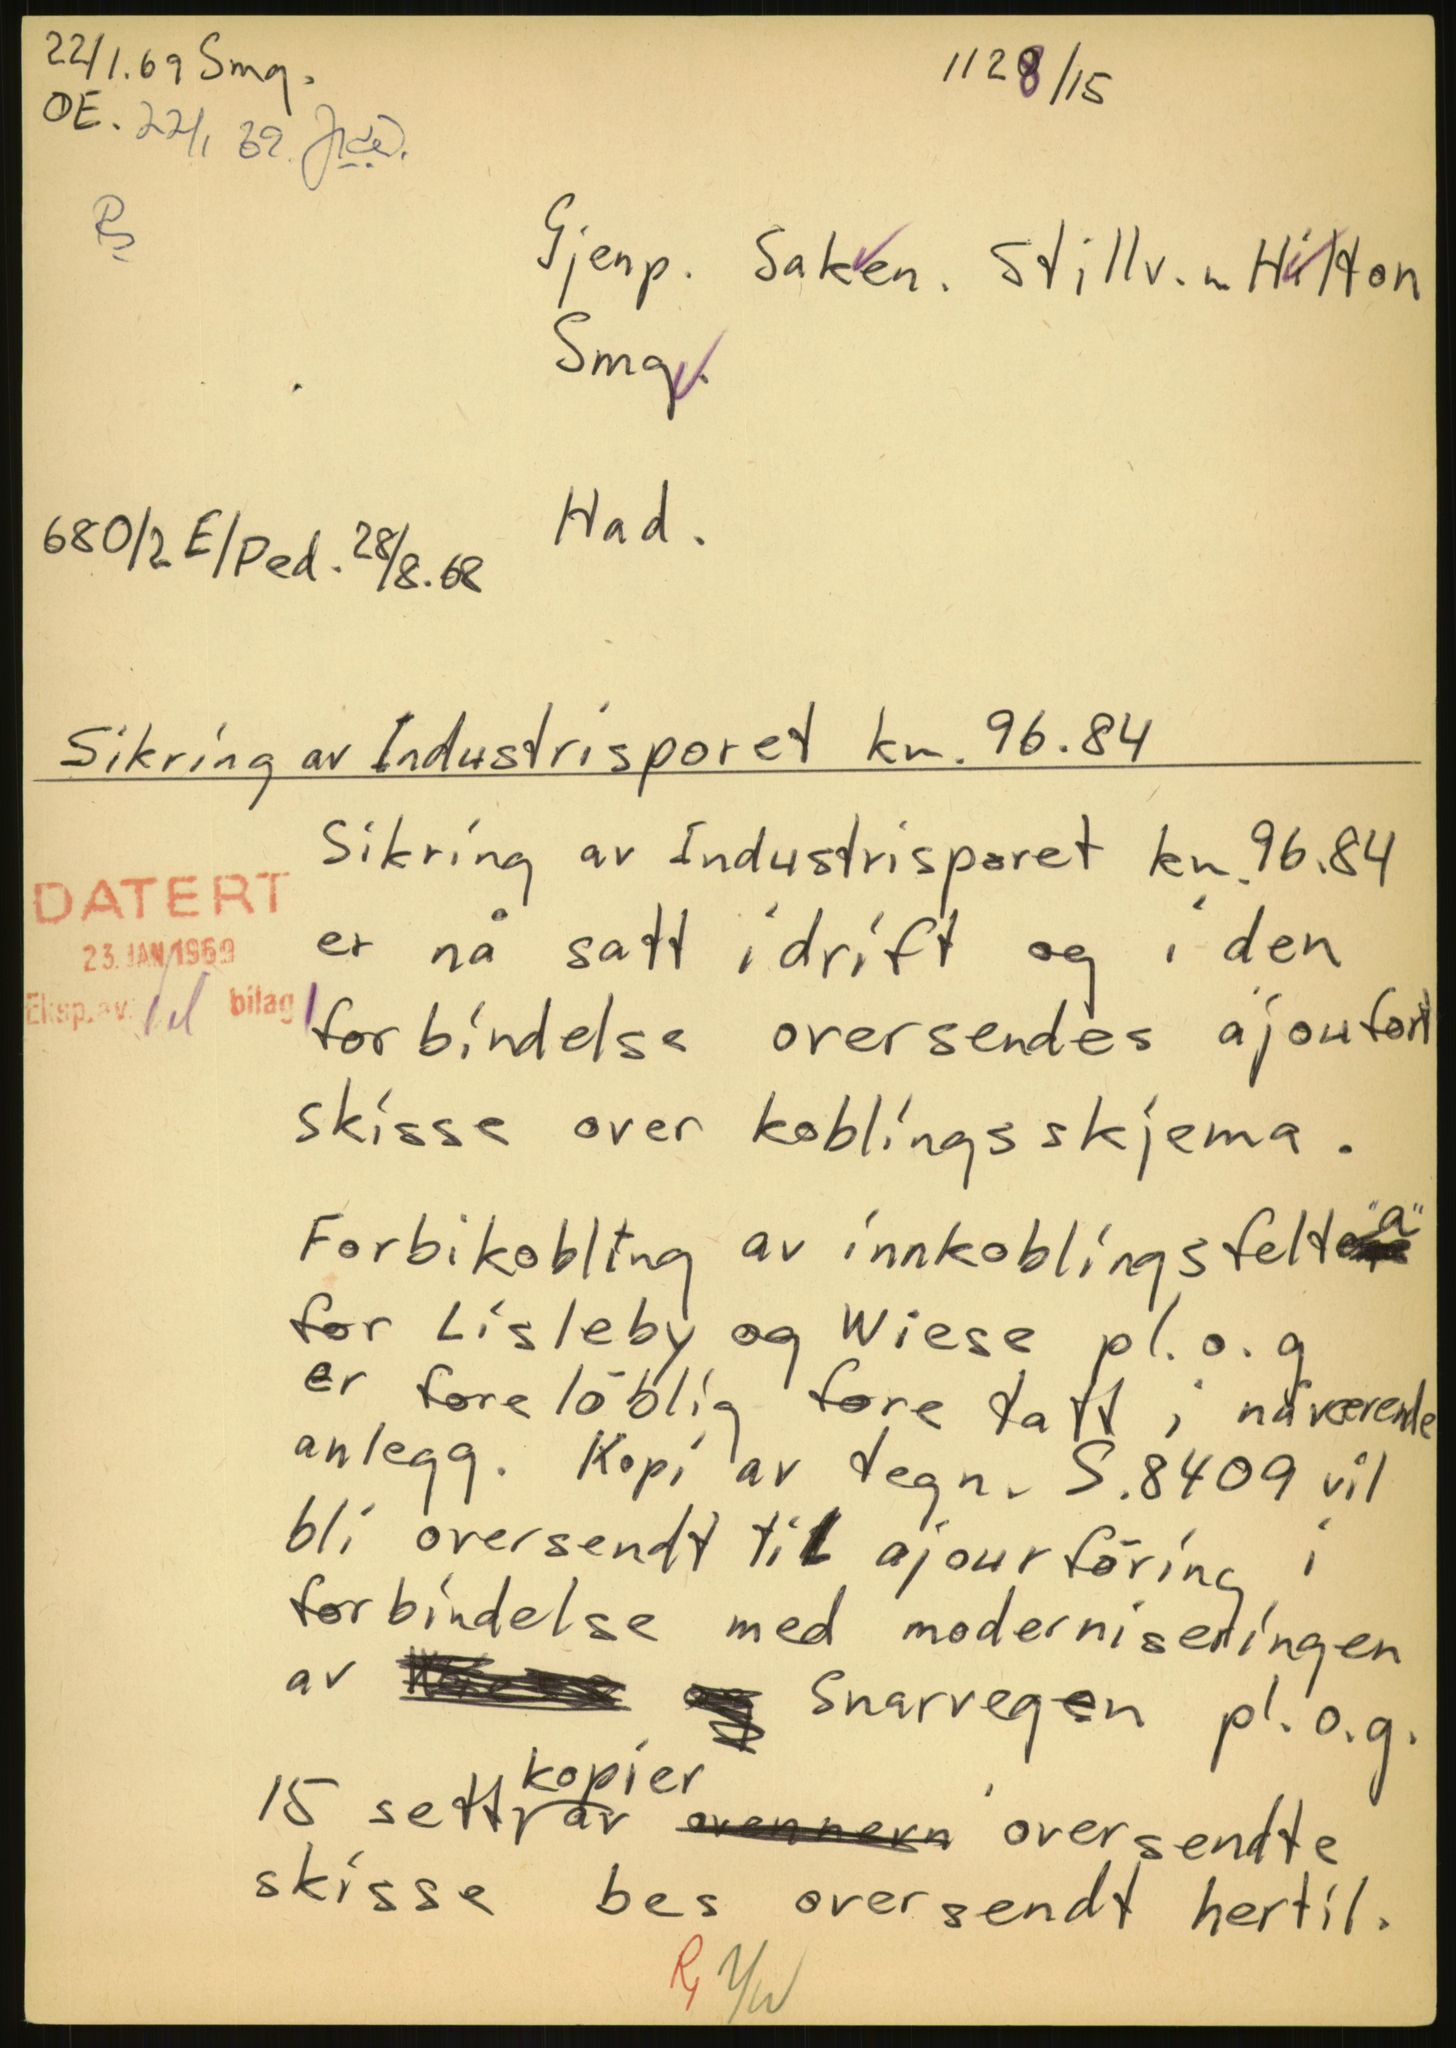 22/1.69 Smg.
1128/15
OE. 22/1 69.
Gjenp. Saken. Stillv. m Hilton
Smg.
Had.
680/2 E/Ped. 28/8.68
Sikring av Industrisporet km. 96.84
Sikring av Industrisporet km. 96.84
DATERT
23. JAN 1969
Eksp. av: bilag 1
er nå satt i drift og i den
forbindelse oversendes ajouført
skisse over koblingsskjema.
Forbikobling av innkoblingsfelt "a"
for Lisleby og Wiese pl.o.g
er foreløblig fore tatt i nåværende
anlegg. Kopi av tegn. S.8409 vil
bli oversendt til ajourføring i
forbindelse med moderniseringen
av Snarvegen pl.o.g.
15 sett kopier av oversendte
skisse bes oversendt hertil.